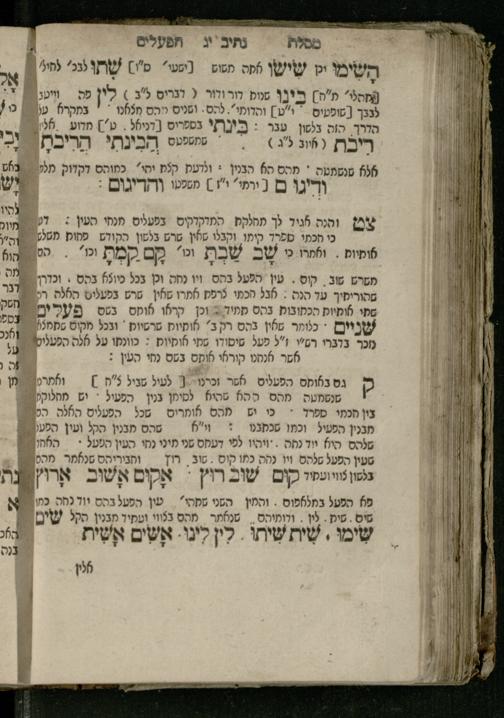 מסלת נתיב יג הפעלים
השימו וכן שישו אתה משוש [ישעי׳ ס״ו] שתו לבכ׳ לחיל׳
[תהלי׳ מ״ח] בינו שנות דור ודור (דברים ל״ב) לין פה וייטב
לבבך [שופטים י״ט] והדומי׳ להם. ושנים מהם מלאנו במקרא על
הדרך הזה בלשון עבר: בינתי בספרים [דניאל. ט׳] מדוע אליו
ריבת (איוב ל״ג) שמשפטם הבינתי הריבת
אלא שנשמעה מהם הא הבנין. ולדעת קלת יהי׳ כמוהם דקדוק מלת
ודיגום [ירמי׳ י״ו] משפטו והדיגום:
צט והנה אגיד לך מחלקת המדקדקים בפעלים מנחי העין: דע
כי חכמי ספרד קימו וקבלו שאין שרש בלשון הקודש פחות משלש
אותיות. ואמרו כי שב שבת וכו׳ קם קמת וכו׳. הם
משרש שוב. קום. עין הפעל בהם ויו נחה וכן בכל כיוצא בהם. וכדרך
שהוריתיך עד הנה: אבל חכמי צרפת אמרו שאין שרש בפעלים האלה רק
שתי אותיות הכתובות בהם תמיד. וכן קראו אותם בשם פעלים
שניים כלומר שאין בהם רק ב׳ אותיות שרשיות. ובכל מקום שתמצא
נזכר בדברי רש״י ז״ל פעל שיסודו שתי אותיות: כוונתו על אלה הפעלים
אשר אנחנו קוראי אותם בשם נחי העין:
ק גם באותם הפעלים אשר זכרנו [לעיל שביל ל״ח] ואמרנו
שנשמעה מהם ההא שהיא לסימן בנין הפעיל. יש מחלוקת
בין חכמי ספרד. כי יש מהם אומרים שכל הפעלים האלה הם
מבנין הפעיל וכמו שכתבנו: וי״א שהם מבנין הקל ועין הפעל
שלהם היא יוד נחה. ויהיו לפי דעתם שני מיני נחי העין הפעל. האחד
שעין הפעל שלהם ויו נחה כמו קום. שוב. רוץ. וחביריהם שנאמר מהם
בלשון לווי ועתיד קום שוב רוץ: אקום אשוב ארוץ
פא הפעל במלאפום. והמין השני שתהי׳ עין הפעל בהם יוד נחה כמו
שים. שית. לין. ודומיהם שנאמר מהם בלווי ועתיד מבנין הקל שים
שימו. שית שיתו. לין לינו. אשים אשית
אלין